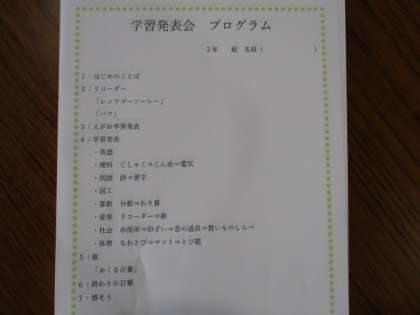 学習発表会　プログラム
３年　　組　名前（　　　　　　　）
１：はじめのことば
２：リコーダー
「レッツゴーソーレー」
「パフ」
３：えがお学習発表
４：学習発表
・英語
・理科　じしゃく⇒こん虫⇒電気
・国語　詩⇒習字
・図工
・算数　分数⇒わり算
・音楽　リコーダー⇒歌
・社会　市役所⇒印ざい⇒昔の道具⇒買いものしらべ
・体育　なわとび⇒マット⇒とび箱
５：歌
「おくる言葉」
６：終わりの言葉
７：感そう